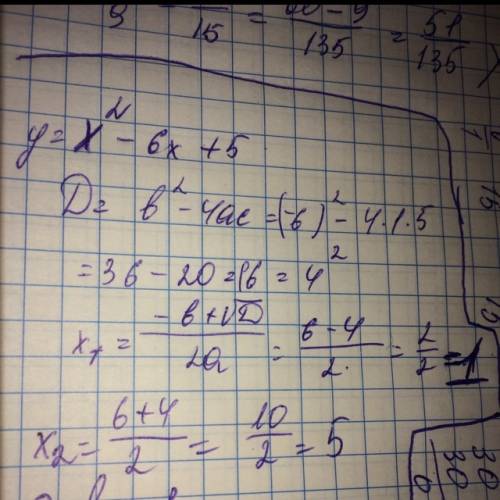 9 15 = 135 = 51/135
y = x² - 6x + 5
D = b² - 4ac = (-6)² - 4·1·5
= 36 - 20 = 16 = 4²
x₁ = (-b + √D)/2a = (6 - 4)/2 = 2/2 = 1
x₂ = (6 + 4)/2 = 10/2 = 5
30
30
0